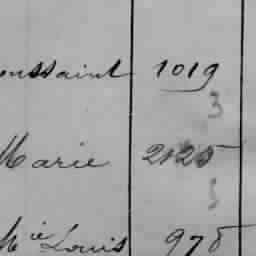 oussaint 1019
3
Marie 2125
3
Mie Louis 978